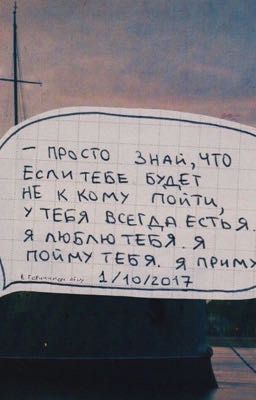 – ПРОСТО ЗНАЙ, ЧТО
ЕСЛИ ТЕБЕ БУДЕТ
НЕ К КОМУ ПОЙТИ,
У ТЕБЯ ВСЕГДА ЕСТЬ Я.
Я ЛЮБЛЮ ТЕБЯ. Я
ПОЙМУ ТЕБЯ. Я ПРИМУ
1/10/2017